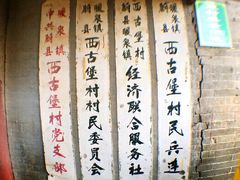 中共蔚县
暖泉镇
西古堡村党支部
蔚县
暖泉镇
西古堡村村民委员会
蔚县
暖泉镇
西古堡村
经济联合服务社
蔚县
暖泉镇
西古堡村民兵连